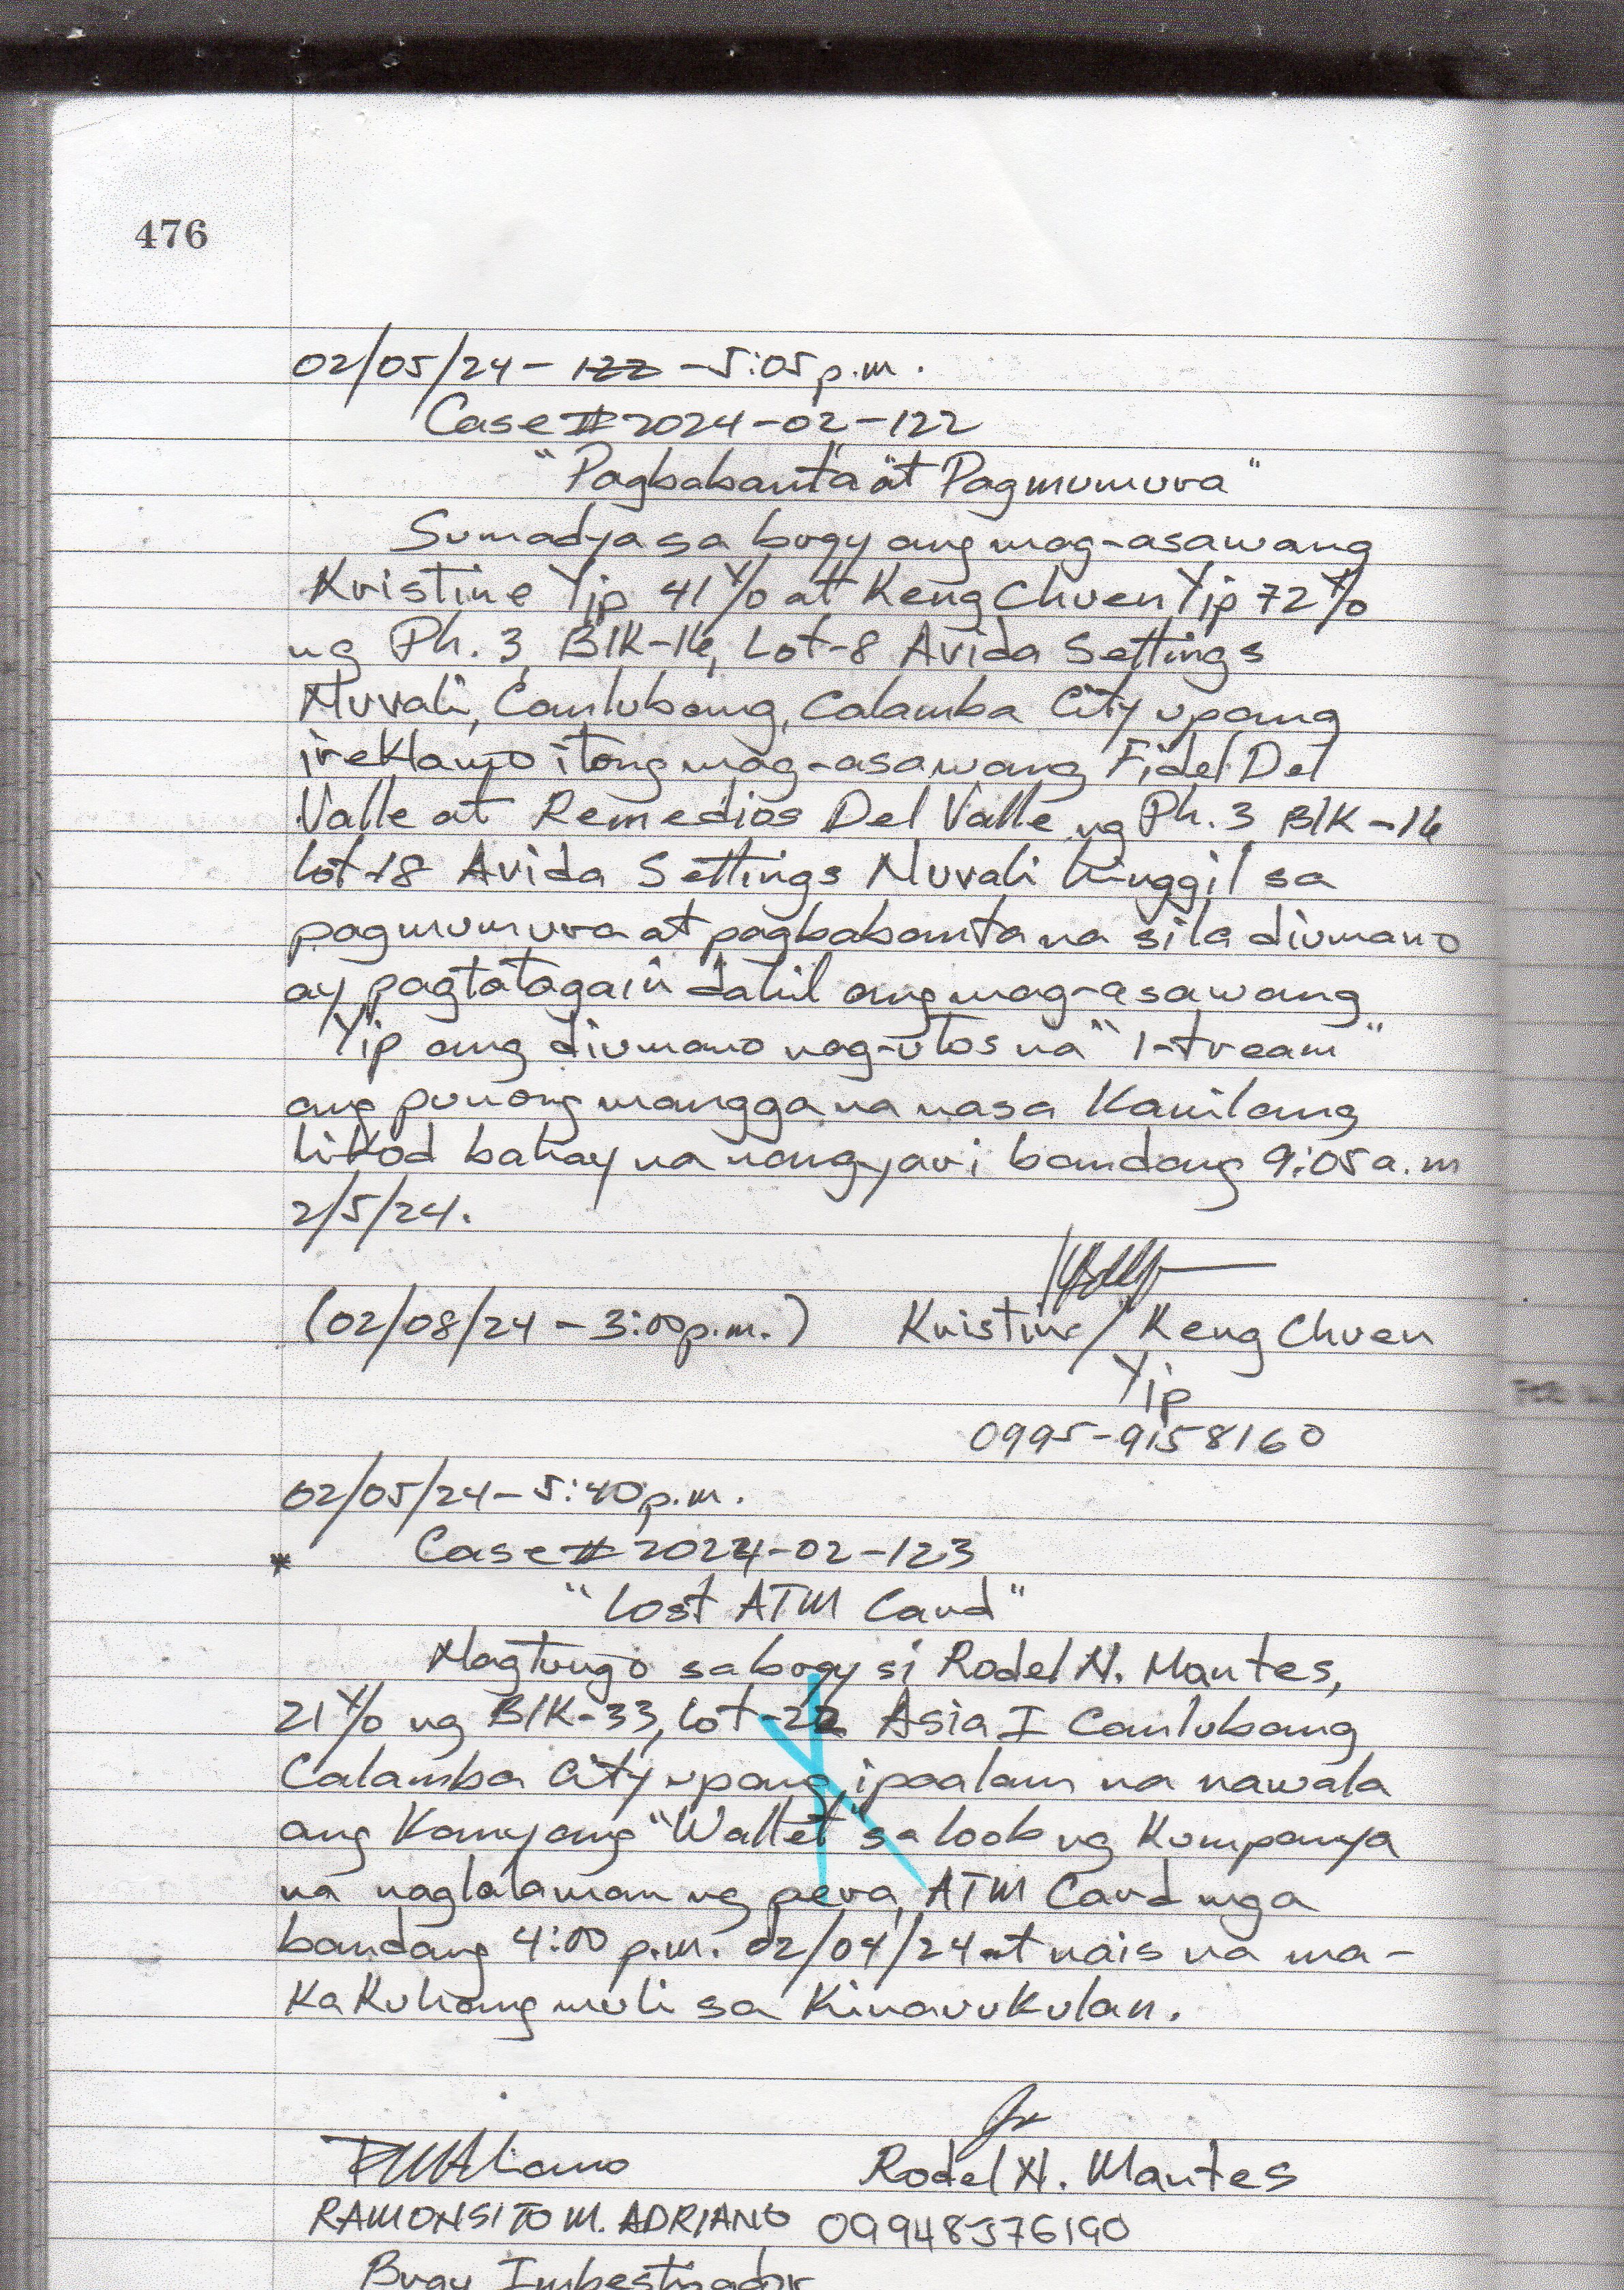 476
02/05/24 - 122 - 5:05 p.m.
Case # 2024-02-122
"Pagbabanta at Pagmumura"
Sumadya sa brgy ang mag-asawang
Kristine Yip 41 y/o at Keng Chuen Yip 72 y/o
ng Ph. 3, Blk-16, Lot-8 Avida Settings
Nuvali, Canlubang, Calamba City upang
ireklamo itong mag-asawang Fidel Del
Valle at Remedios Del Valle ng Ph. 3 Blk-16
Lot-18 Avida Settings Nuvali hinggil sa
pagmumura at pagbabanta na sila diumano
ay pagtatagain dahil ang mag-asawang
Yip ang diumano nag-utos na "i-tream"
ang punong mangga na nasa kanilang
likod bahay na nangyari bandang 9:05 a.m
2/5/24.
(02/08/24 - 3:00 p.m.) Kristine/Keng Chuen
Yip
0995-9158160
02/05/24 - 5:40 p.m.
* Case # 2024-02-123
"Lost ATM Card"
Nagtungo sa brgy si Rodel N. Mantes,
21 y/o ng Blk-33, Lot-22 Asia I Canlubang
Calamba City upang ipaalam na nawala
ang kanyang "Wallet" sa loob ng kumpanya
na naglalaman ng pera, ATM Card mga
bandang 4:00 p.m. 02/04/24 at nais na ma-
kakuhang muli sa kinauukulan.
Rodel N. Mantes
RAMONSITO M. ADRIANO 09948376190
Brgy Imbestigador